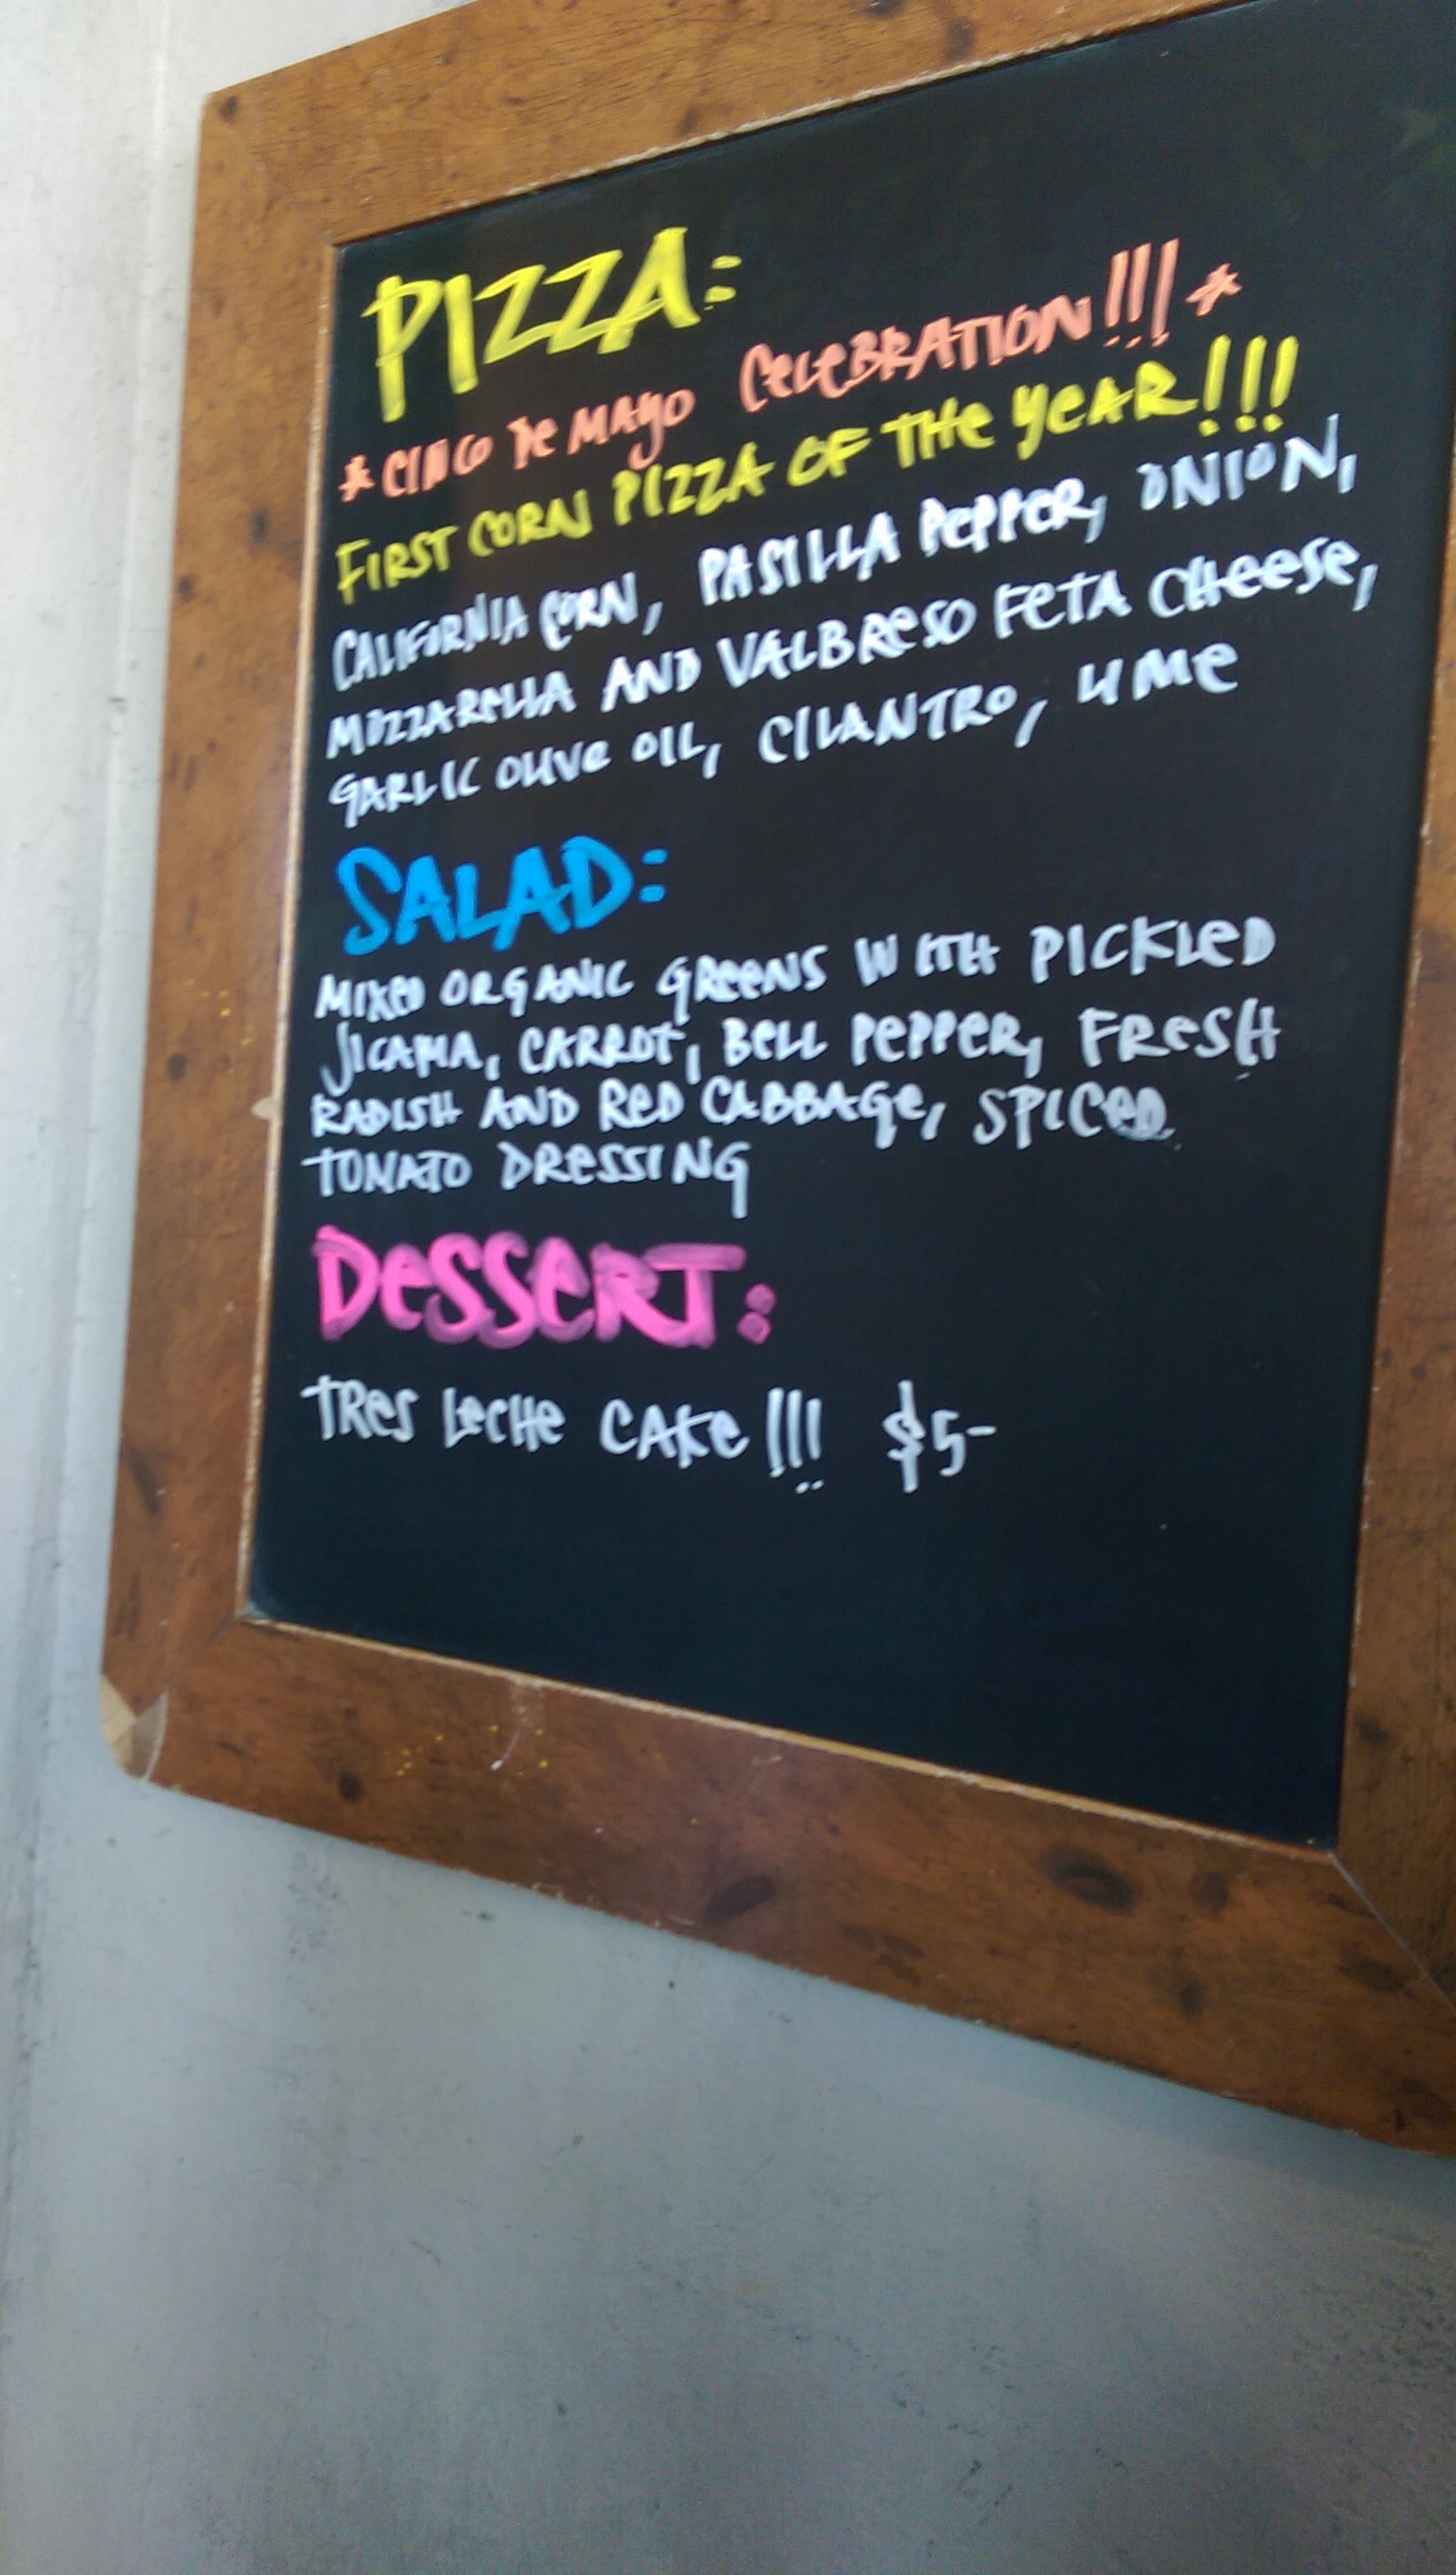 PIZZA:
*CINCO DE MAYO CELEBRATION!!!*
FIRST CORN PIZZA OF THE YEAR!!!
CALIFORNIA CORN, PASILLA PEPPER, ONION,
MOZZARELLA AND VALBRESO FETA CHEESE,
GARLIC OLIVE OIL, CILANTRO, LIME
SALAD:
MIXED ORGANIC GREENS WITH PICKLED
JICAMA, CARROT, BELL PEPPER, FRESH
RADISH AND RED CABBAGE, SPICED
TOMATO DRESSING
DESSERT:
TRES LECHE CAKE!!! $5-